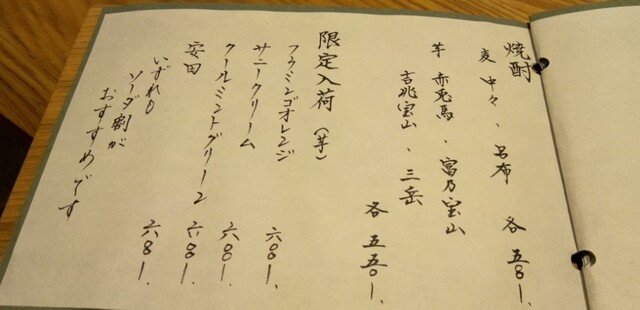 焼酎
麦 中々、呂布 各 五八〇一、
芋 赤兎馬、富乃宝山
吉兆宝山、三岳
各 五五〇一、
限定入荷（芋）
フラミンゴオレンジ 六八〇一、
サニークリーム 六八〇一、
クールミントグリーン 六八〇一、
安田 六八〇一、
いずれも
ソーダ割が
おすすめです